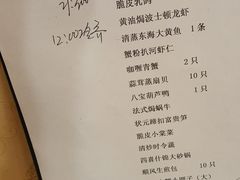 脆皮乳鸽
黄油焗波士顿龙虾
清蒸东海大黄鱼 1条
蟹粉扒河虾仁
咖喱青蟹 2只
蒜茸蒸扇贝 10只
八宝葫芦鸭 1只
法式焗蜗牛
状元蹄扣富贵笋
脆皮小棠菜
清炒时令蔬
四喜什锦大砂锅
顺风生煎包 10只
12:00